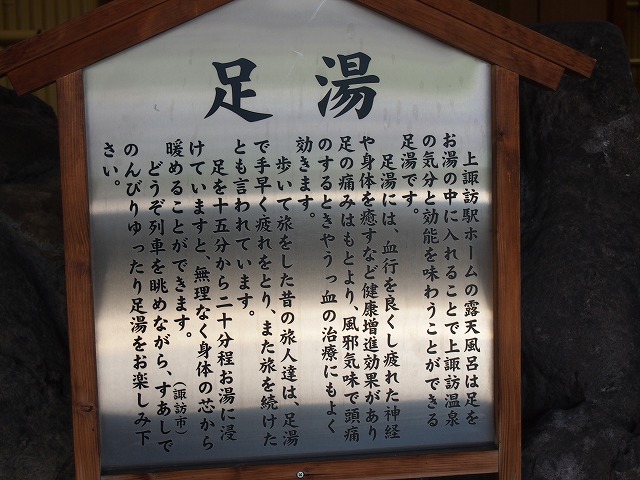 足湯
上諏訪駅ホームの露天風呂は足を
お湯の中に入れることで上諏訪温泉
の気分と効能を味わうことができる
足湯です。
足湯には、血行を良くし疲れた神経
や身体を癒すなど健康増進効果があり
足の痛みはもとより、風邪気味で頭痛
のするときやうっ血の治療にもよく
効きます。
歩いて旅をした昔の旅人達は、足湯
で手早く疲れをとり、また旅を続けた
とも言われています。
足を十五分から二十分程お湯に浸
けていますと、無理なく身体の芯から
暖めることができます。
どうぞ列車を眺めながら、すあしで
のんびりゆったり足湯をお楽しみ下
さい。
(諏訪市)